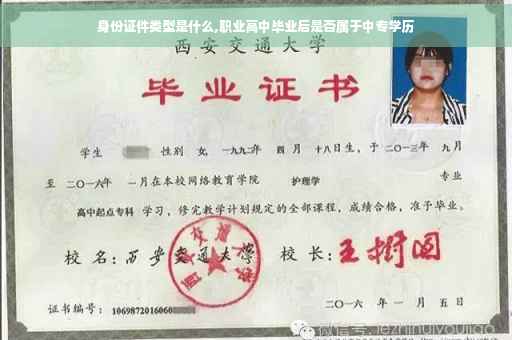 身份证件类型是什么,职业高中毕业后是否属于中专学历
西安交通大学
毕业证书
学生 性别 女, 一九九二年 四 月 十八日生, 于 二〇一三年 九月
至 二〇一六年 一月在本校网络教育学院 护理学 专业
高中起点专科 学习, 修完教学计划规定的全部课程, 成绩合格, 准予毕业。
校 名: 西安交通大学 校 长: 王树国
西安交通大学
证书编号: 1069872016060
二〇一六 年 一 月 五 日
微信号: jezhihuiyoujiao